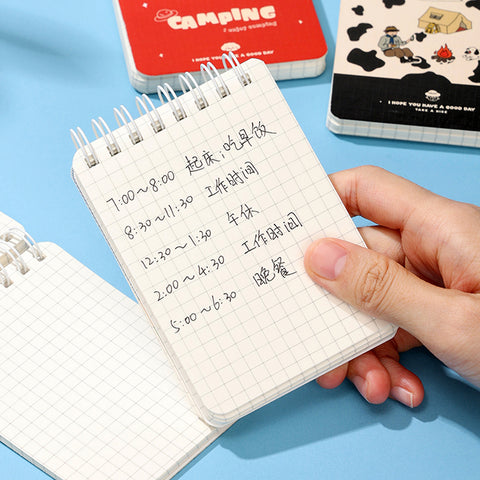 CAMPING
I HOPE YOU HAVE A GOOD DAY
I HOPE YOU HAVE A GOOD DAY
TAKE A HIKE
7:00~8:00 起床;吃早饭
8:30~11:30 工作时间
12:30~1:30 午休
2:00~4:30 工作时间
5:00~6:30 晚餐